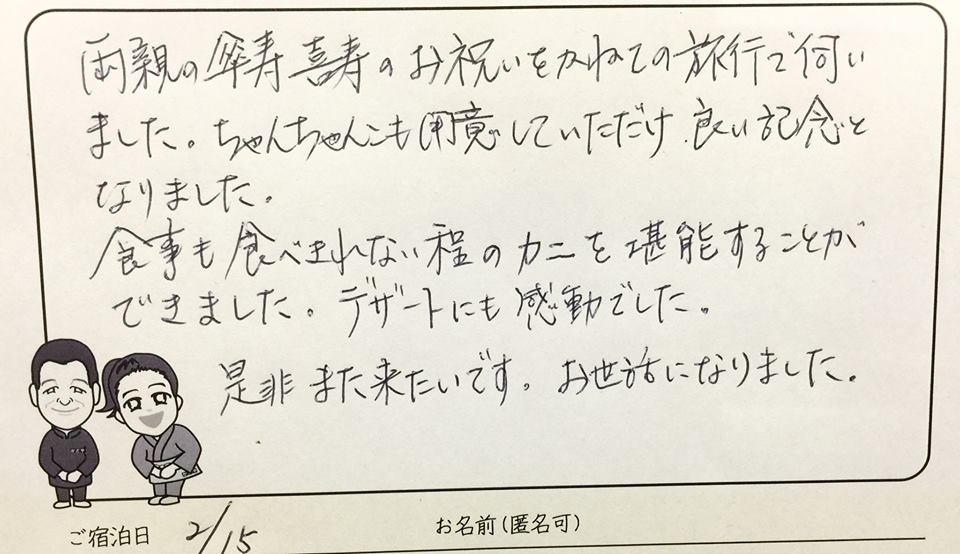 両親の傘寿喜寿のお祝いをかねての旅行で伺い
ました。ちゃんちゃんこも用意していただけ良い記念と
なりました。
食事も食べきれない程のカニを堪能することが
できました。デザートにも感動でした。
是非また来たいです。お世話になりました。
ご宿泊日 2/15 お名前(匿名可)